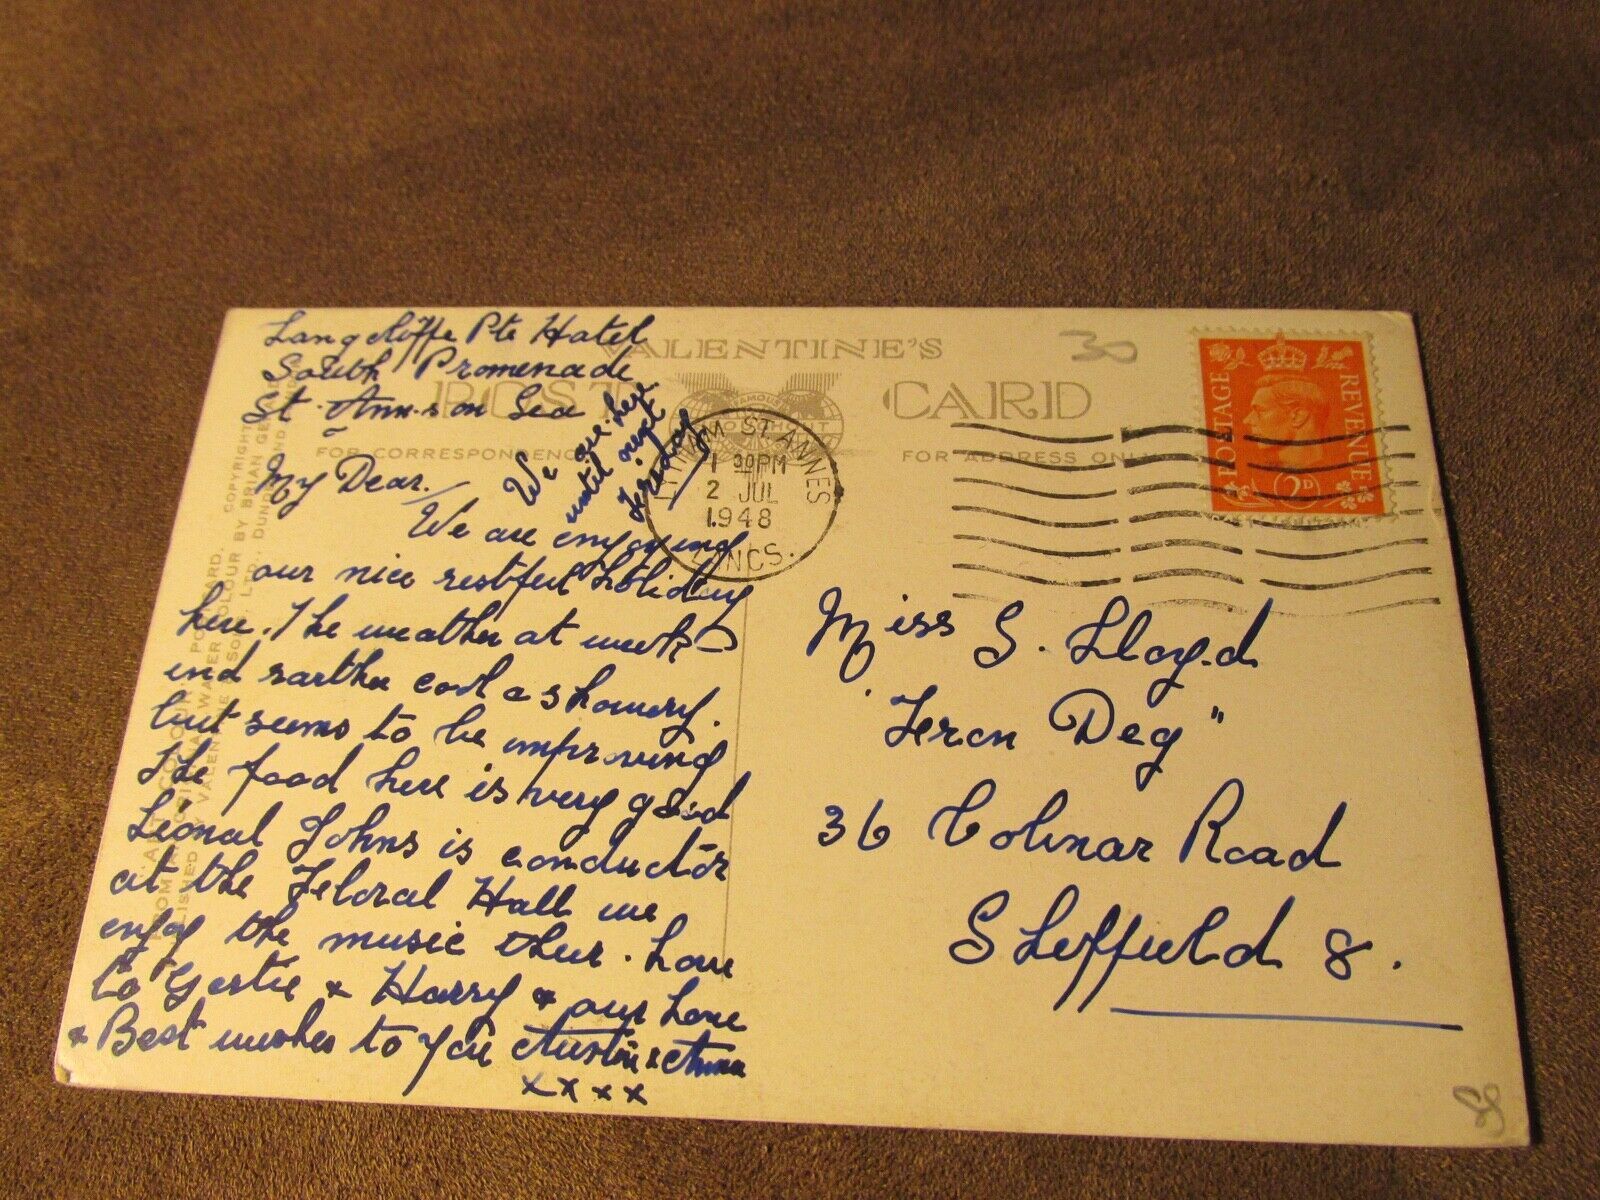 Langcliffe Pte Hotel
South Promenade
St. Anns on Sea
VALENTINE'S
POST CARD
FOR CORRESPONDENCE
FOR ADDRESS ONLY
30
POSTAGE
REVENUE
2D
LYTHAM ST ANNES
1 30 PM
2 JUL
1948
LANCS.
We are here
until next
Friday
My Dear.
We are enjoying
our nice restful holiday
here. The weather at week-
end rather cool & showery.
but seems to be improving
The food here is very good
Lional Johns is conductor
at the Floral Hall we
enjoy the music their. Love
to Gertie & Harry & our Love
& Best wishes to you Austin & Anna
xxxx
Miss S. Lloyd
"Feron Deg"
36 Colinar Road
Sheffield 8.